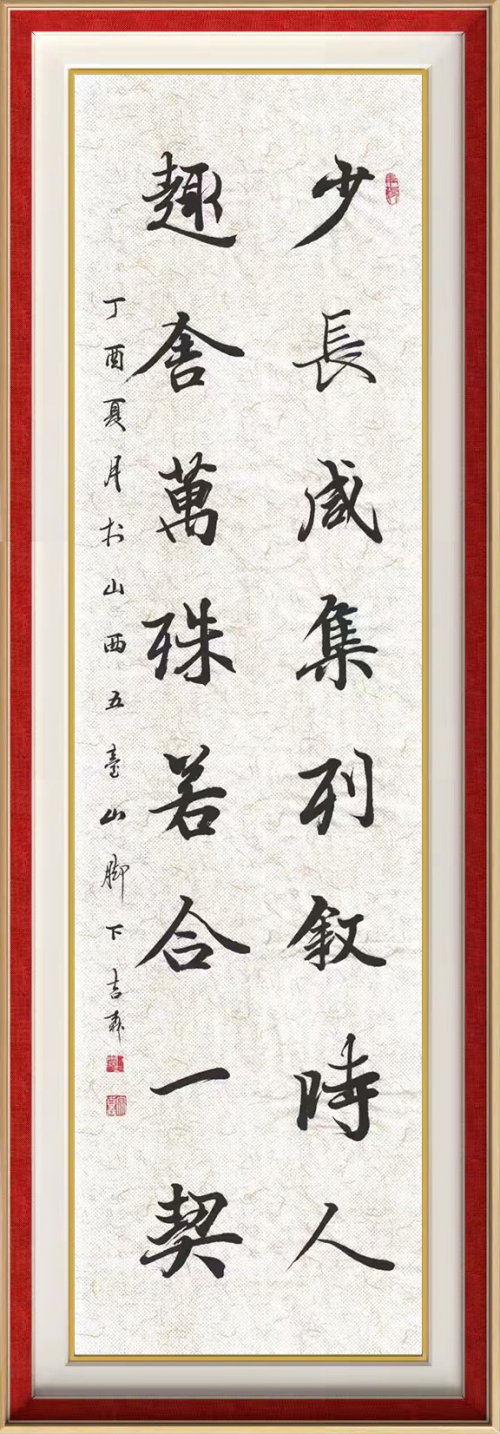 少長咸集列敘時人
趣舍萬殊若合一契
丁酉夏月於山西五臺山脚下吉森